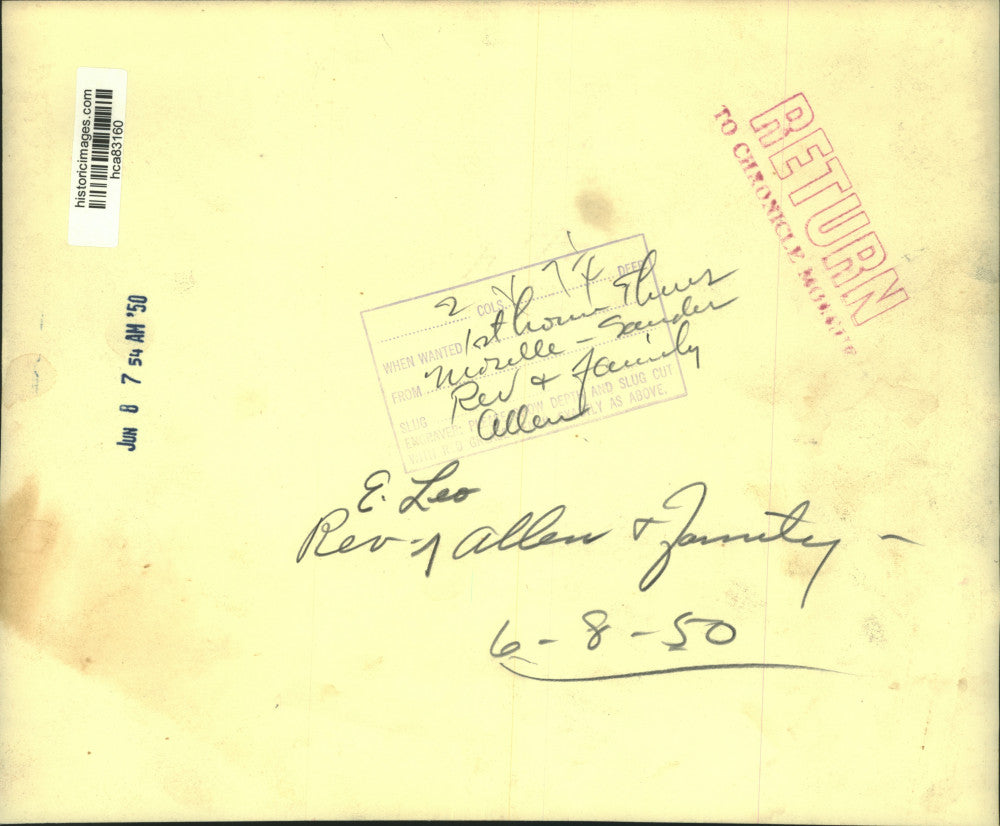 historicimages.com
hca83160
JUN 8 7 54 AM '50
RETURN
TO CHRONICLE
2 COLS. DEEP
WHEN WANTED 1st home Thurs
FROM Mozelle - Sander
Rev & Family
SLUG Allen
AND SLUG CUT
AS ABOVE.
E. Leo
Rev - Allen & Family -
6-8-50